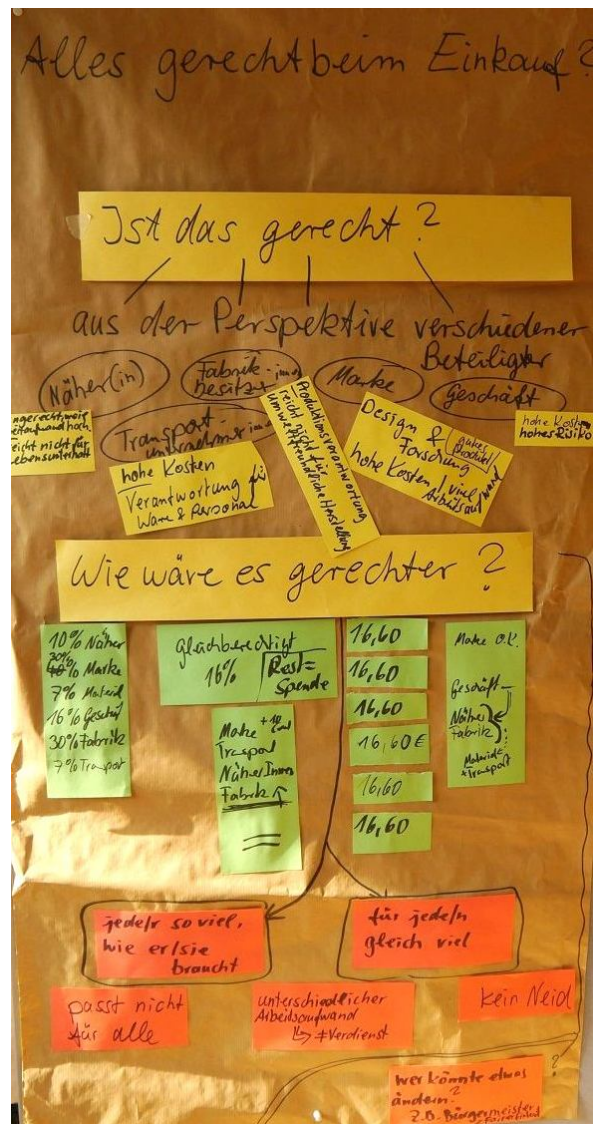 Alles gerecht beim Einkauf?
Ist das gerecht?
aus der Perspektive verschiedener
Beteiligter
Näher(in)
Fabrik-
besitzer
Marke
Geschäft
Transport
hoch
reicht nicht für
hohe Kosten
Verantwortung für
Ware & Personal
Produktionsverantwortung
reicht nicht für
umweltfreundliche Herstellung
Design &
Forschung
hohe Kosten, viel
Arbeitsaufwand
gutes
Produkt
hohe Kosten
hohes Risiko
Wie wäre es gerechter?
10% Näher
30%
Marke
7% Material
16% Geschäft
30% Fabrik
7% Transport
gleichberechtigt
16%
Rest =
Spende
Marke
Transport
NäherInnen
Fabrik
16,60
16,60
16,60
16,60€
16,60
16,60
Marke O.K.
Geschäft
Näher
Fabrik
Material
+ Transport
jede/r so viel,
wie er/sie
braucht
für jede/n
gleich viel
passt nicht
für alle
unterschiedlicher
Arbeitsaufwand
↳ ≠ Verdienst
kein Neid
wer könnte etwas
ändern?
z.B. Bürgermeister
?